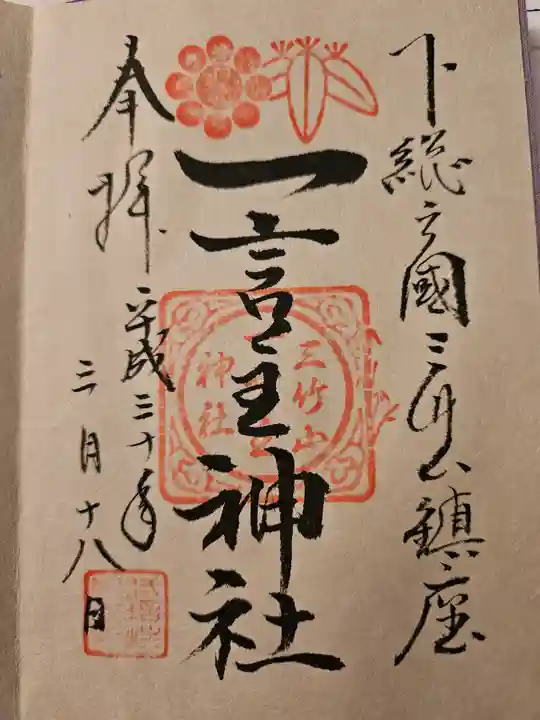 下総之國三竹山鎮座
一言主神社
三竹山
神社
奉拝
平成三十年
三月十八日